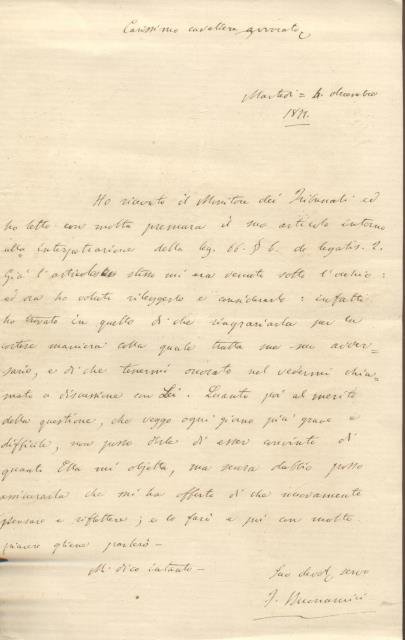 Carissimo cavaliere avvocato,
Martedì = 4. decembre
1877.
Ho ricevuto il Monitore dei Tribunali ed
ho letto con molta premura il suo articolo intorno
alla interpretazione della leg. 66. § 6. de legatis. 2.
Già l'articolo stesso mi era venuto sotto l'occhio:
ed ora ho voluto rileggerlo e considerarlo: infatti
ho trovato in quello di che ringraziarla per la
cortese maniera colla quale tratta un suo avver-
sario, e di che tenermi onorato nel vedermi chia-
mato a discussione con Lei. Quanto poi al merito
della questione, che veggo ogni giorno più grave e
difficile, non posso dirle di esser convinto di
quanto Ella mi objetta, ma senza dubbio posso
assicurarla che mi ha offerto di che nuovamente
pensare e riflettere; e lo farò e poi con molto
piacere gliene parlerò —
Mi dico intanto —
Suo devot. servo
F. Buonamici